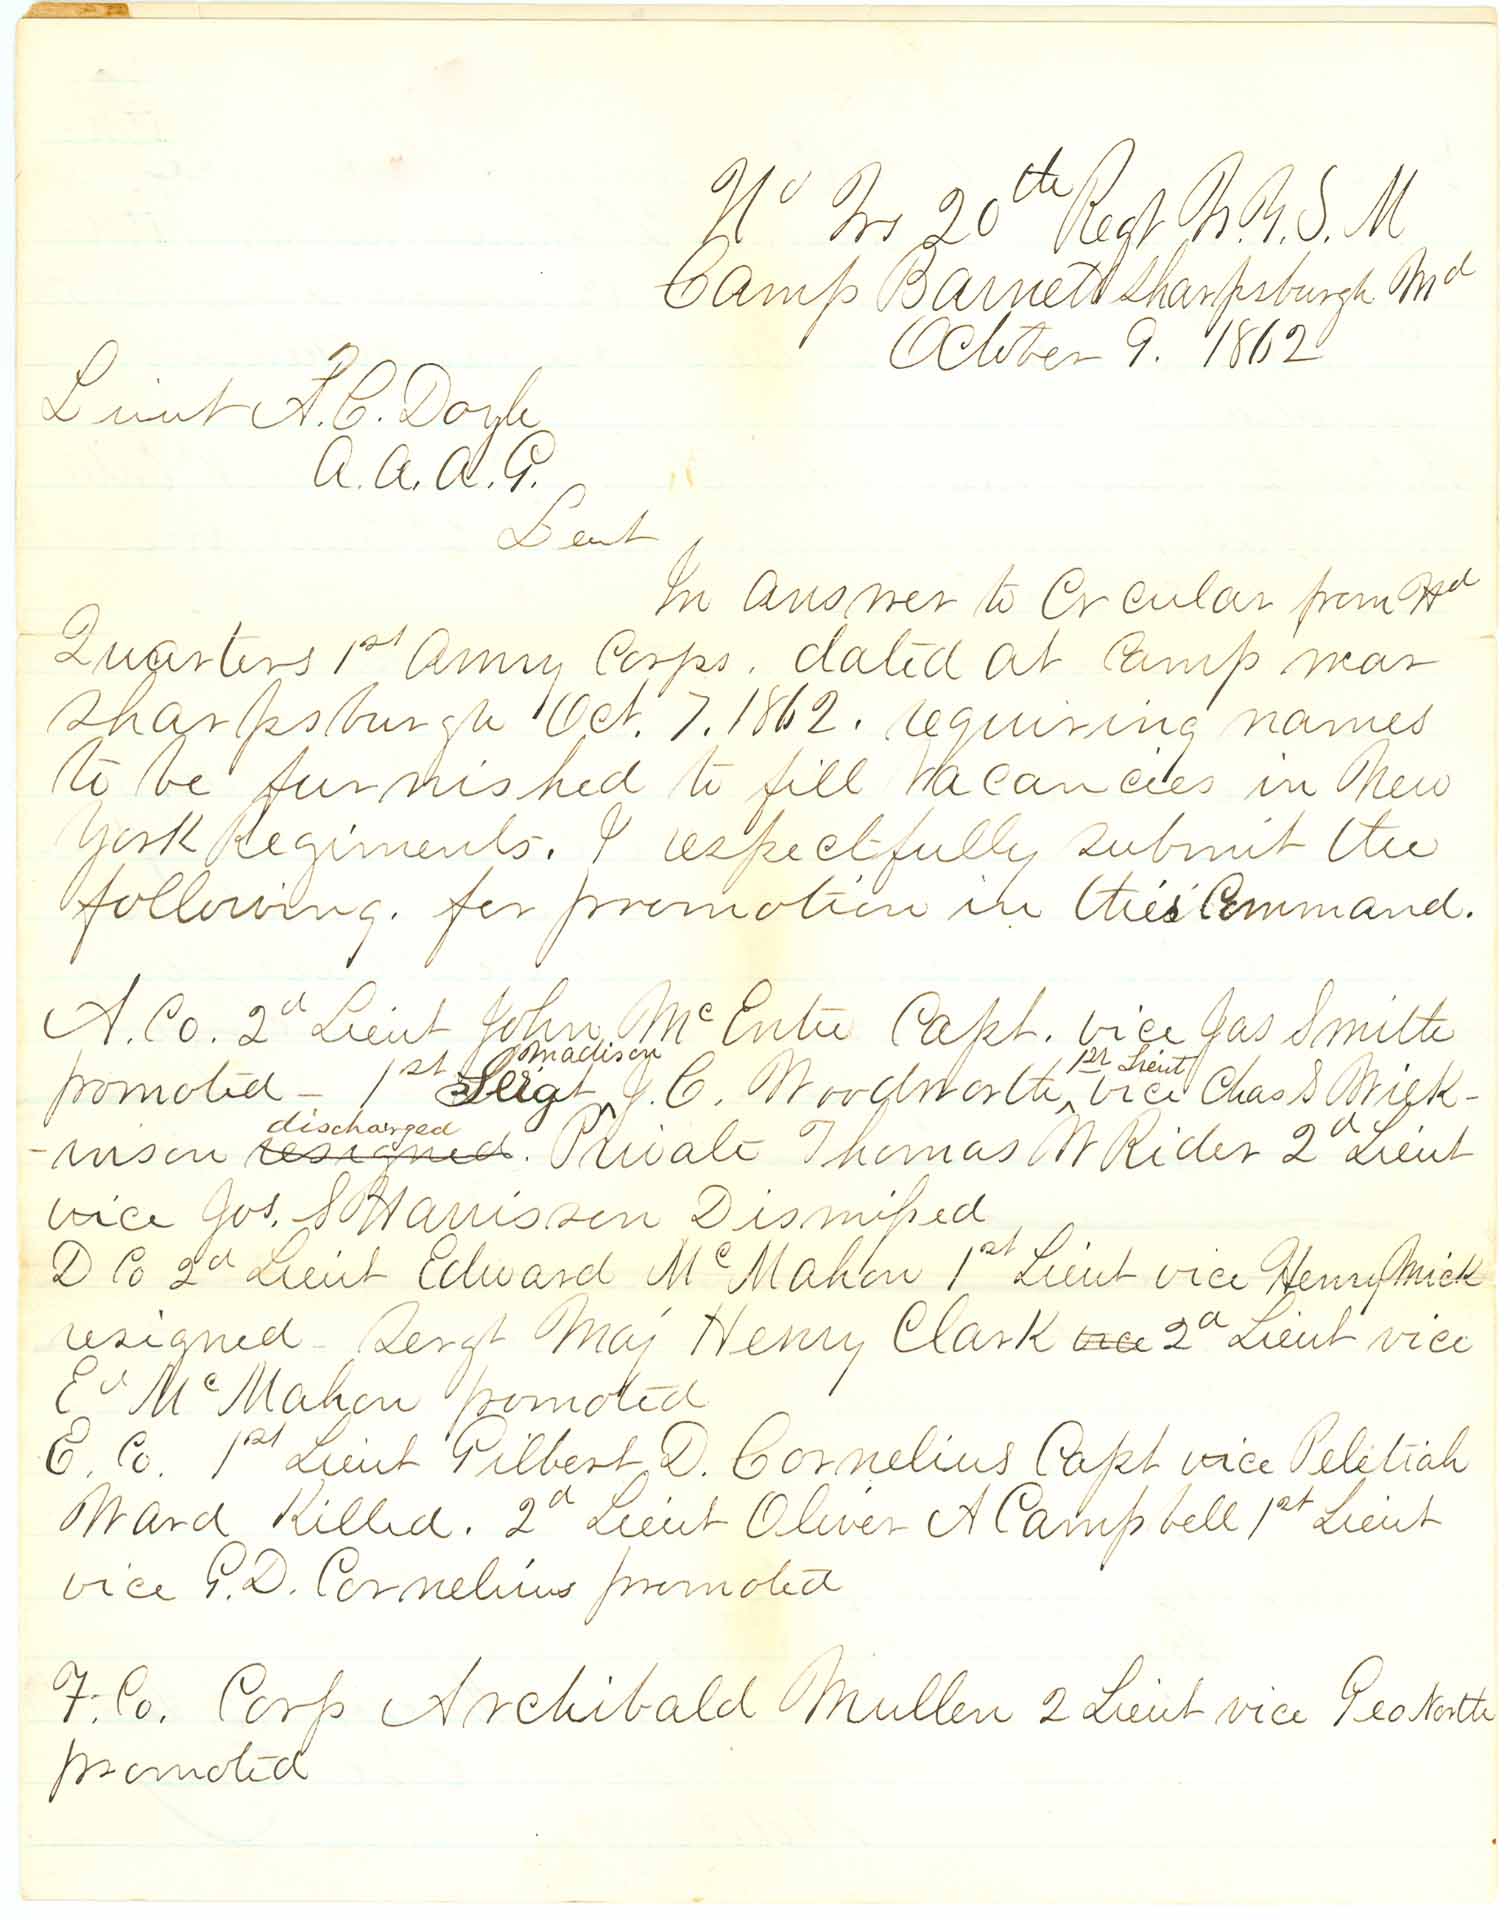 Hd Qrs 20th Regt N.Y.S.M
Camp Barnett Sharpsburgh Md
October 9. 1862
Lieut A.C. Doyle
A.A.A.G.
Leut
In answer to Circular from Hd
Quarters 1st Army Corps. dated at Camp near
Sharpsburgh Oct. 7. 1862. requiring names
to be furnished to fill vacancies in New
York Regiments. I respectfully submit the
following. for promotion in this Command.
A. Co. 2d Lieut John McEntee Capt. vice Jas Smith
Madison 1st Lieut
promoted - 1st Sergt J. C. Woodworth vice Chas S Wilk-
discharged
-inson resigned. Private Thomas W Rider 2d Lieut
vice Jos. S Harrisson Dismissed
D Co 2d Lieut Edward McMahon 1st Lieut vice Henry Mick
resigned - Sergt Maj Henry Clark vice 2d Lieut vice
Ed McMahon promoted
E. Co. 1st Lieut Gilbert D. Cornelius Capt vice Peletiah
Ward Killed. 2d Lieut Oliver A Campbell 1st Lieut
vice G.D. Cornelius promoted
F. Co. Corp Archibald Mullen 2 Lieut vice Geo North
promoted